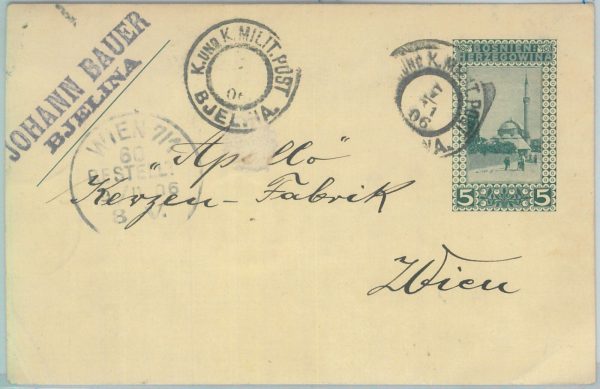 JOHANN BAUER
BJELINA
K. UND K. MILIT. POST
06
BJELINA.
UND K. MILIT. POST
XI
06
NA.
BOSNIEN
HERZEGOWINA
5 5
WIEN 7/1
60
BESTELLT
06
8 V.
„Apollo“
Kerzen-Fabrik
Wien